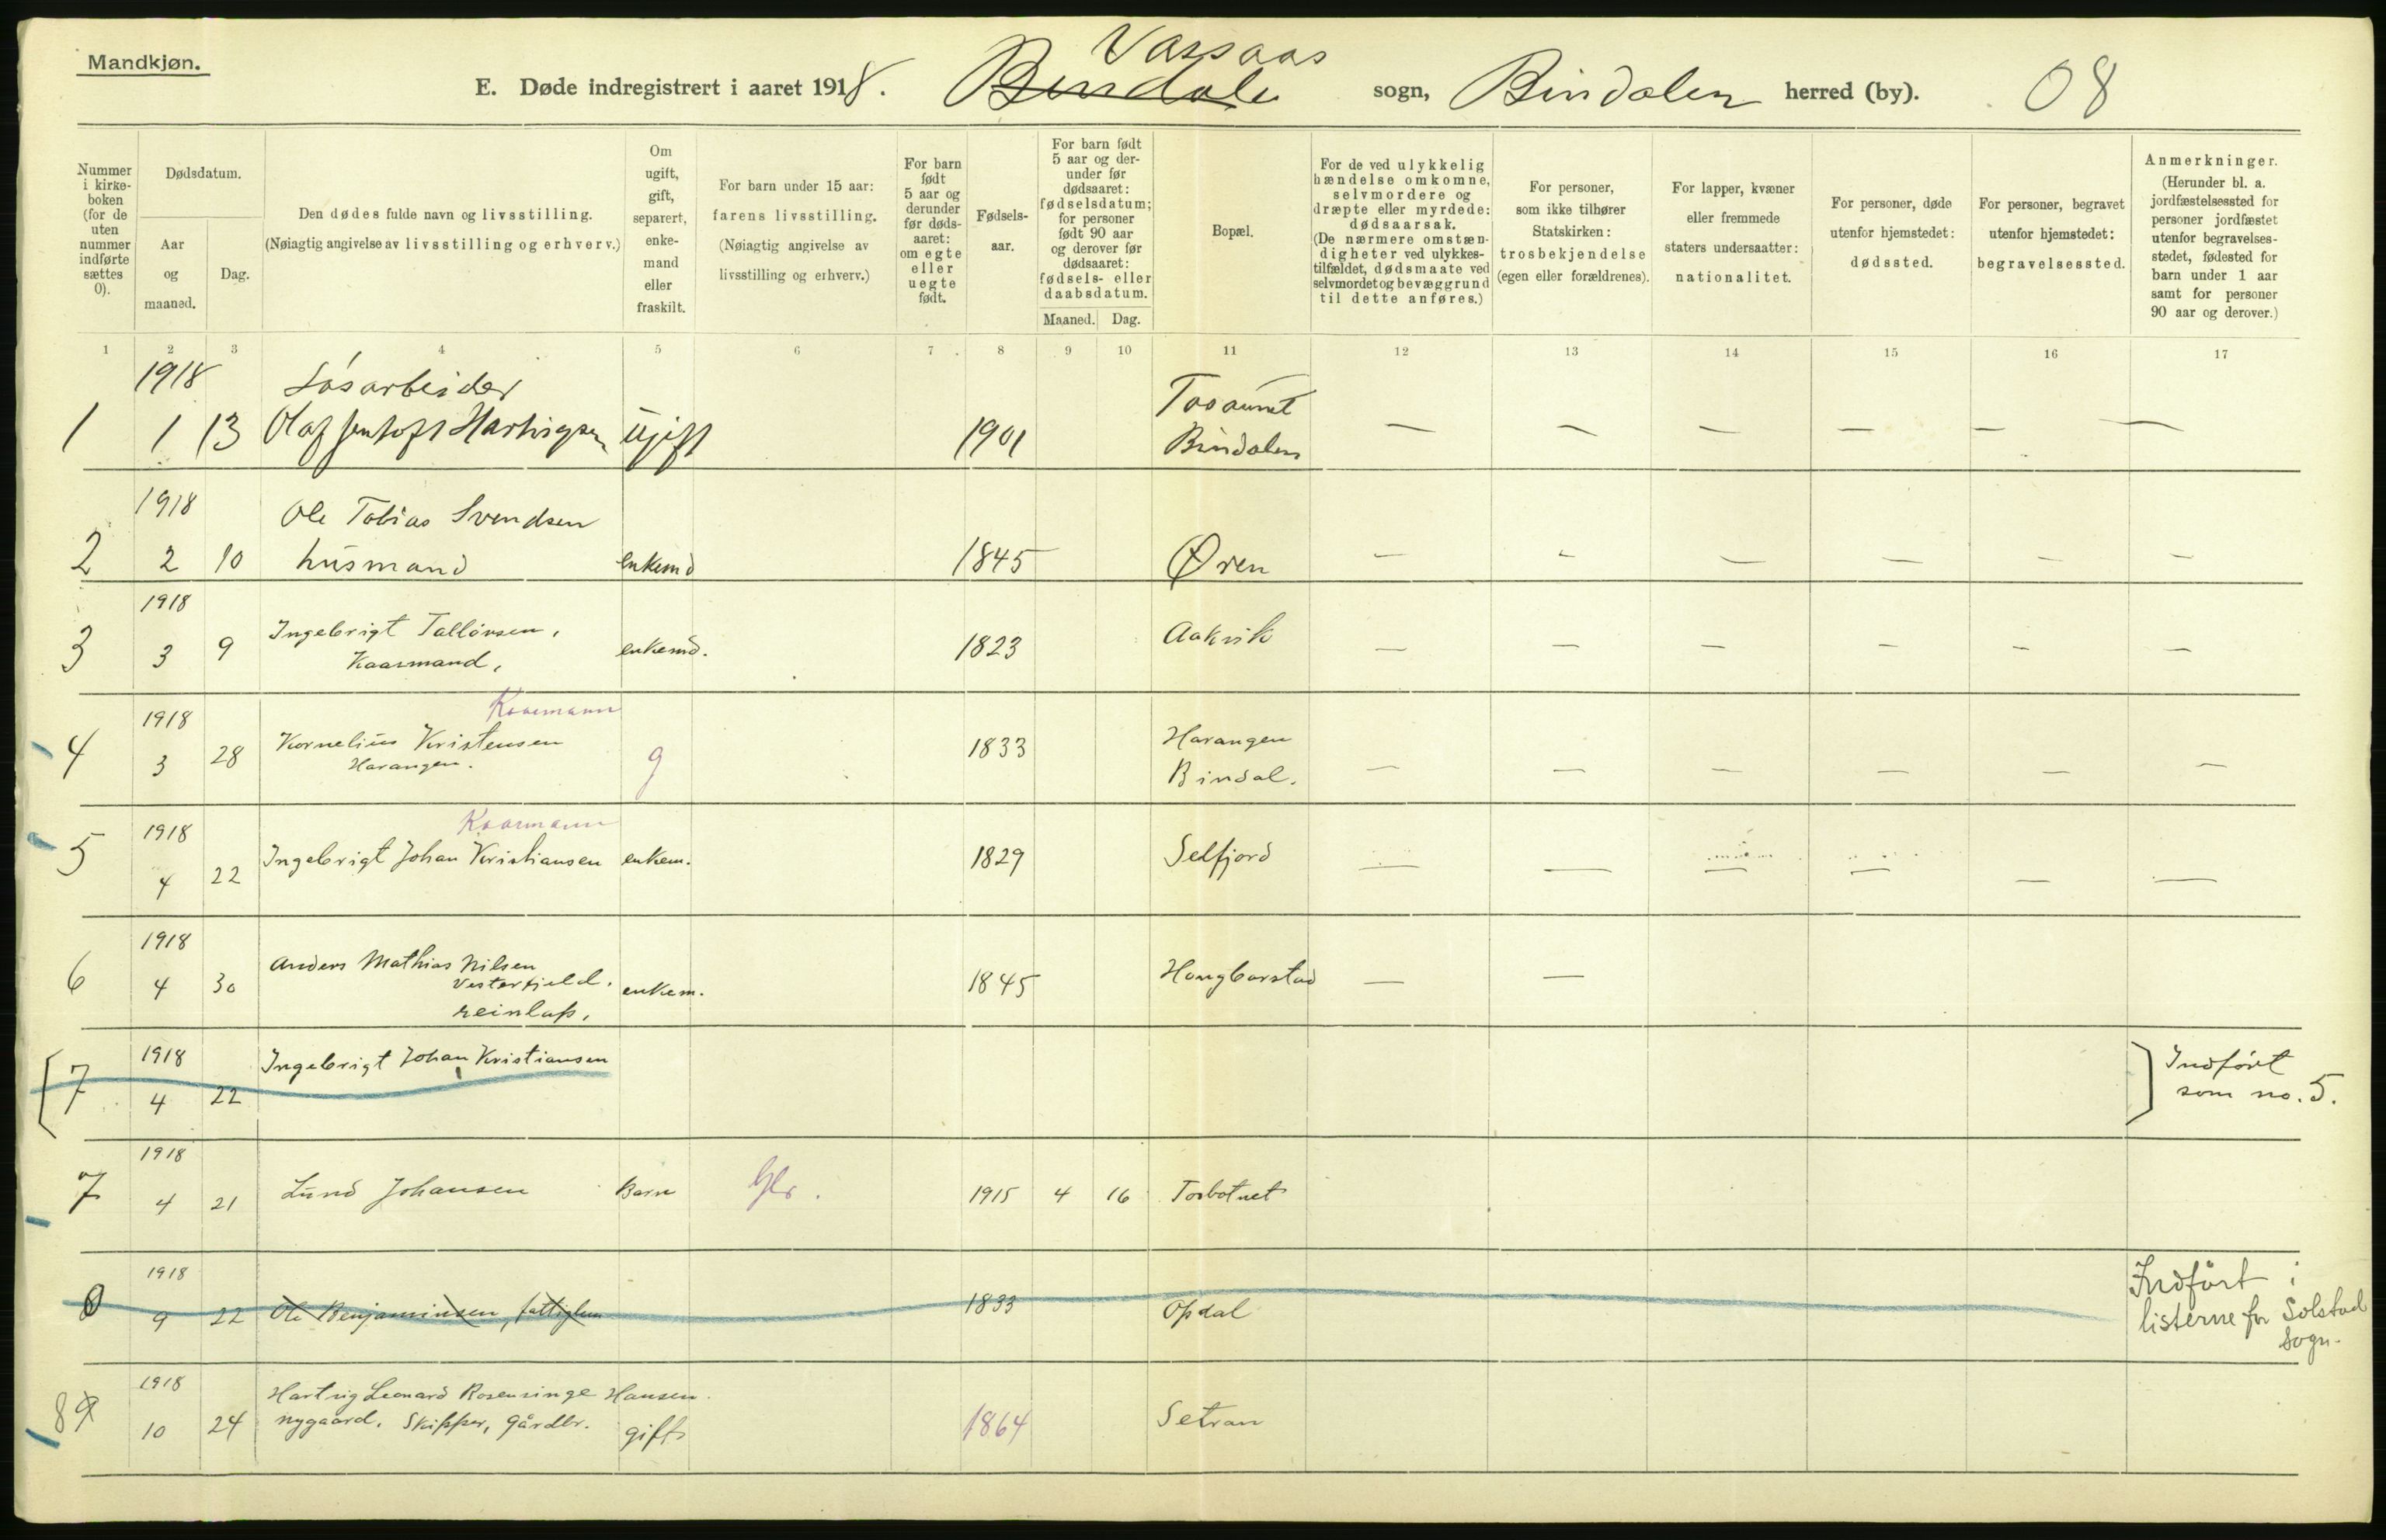 Mandkjøn.
Vassaas
E. Døde indregistrert i aaret 1918. Bindalen sogn, Bindalen herred (by). 08
Nummer i kirkeboken (for de uten nummer indførte sættes 0).
Dødsdatum.
Aar og maaned.
Dag.
Den dødes fulde navn og livsstilling.
(Nøiagtig angivelse av livsstilling og erhverv.)
Om ugift, gift, separert, enkemand eller fraskilt.
For barn under 15 aar: farens livsstilling.
(Nøiagtig angivelse av livsstilling og erhverv.)
For barn født 5 aar og derunder før dødsaaret: om egte eller uegte født.
Fødselsaar.
For barn født 5 aar og derunder før dødsaaret: fødselsdatum; for personer født 90 aar og derover før dødsaaret: fødsels- eller daabsdatum.
Maaned. Dag.
Bopæl.
For de ved ulykkelig hændelse omkomne, selvmordere og dræpte eller myrdede: dødsaarsak.
(De nærmere omstændigheter ved ulykkestilfældet, dødsmaate ved selvmordet og bevæggrund til dette anføres.)
For personer, som ikke tilhører Statskirken: trosbekjendelse (egen eller forældrenes).
For lapper, kvæner eller fremmede staters undersaatter: nationalitet.
For personer, døde utenfor hjemstedet: dødssted.
For personer, begravet utenfor hjemstedet: begravelsessted.
Anmerkninger.
(Herunder bl. a. jordfæstelsessted for personer jordfæstet utenfor begravelsesstedet, fødested for barn under 1 aar samt for personer 90 aar og derover.)
1 2 3 4 5 6 7 8 9 10 11 12 13 14 15 16 17
1918 Løsarbeider
1 1 13 Olaf Hartvigsen Ugift 1901 Bindalen — — — — — —
1918 Ole Tobias Svendsen
2 2 10 husmand enkemd 1845 Øren — — — — — —
1918 Ingebrigt Tallövsen, Aakvik
3 3 9 Kaarmand, enkemd. 1823 — — — — — —
Kaarmann
1918 Kornelius Kristensen Harangen
4 3 28 Harangen. g 1833 Bindal. — — — — — —
Kaarmann
1918
5 4 22 Ingebrigt Johan Kristiansen enkem. 1829 Selfjord — — — — — —
1918 Anders Mathias Nilsen
6 4 30 Vesterfjeld. enkem. 1845 Hongbarstad — —
reinlap,
1918 Ingebrigt Johan Kristiansen Indført
7 4 22 som no. 5.
1918
7 4 21 Lund Johansen Barn Gbr. 1915 4 16 Torbotnet
1918 Indført i
0 9 22 Ole Benjaminsen, fattiglem 1833 Opdal listerne for Solstad
Sogn.
1918 Hartvig Leonard Rosenvinge Hansen
89 10 24 nygaard. Skipper, gårdbr. gift 1864 Setran